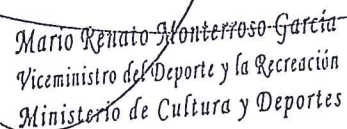 Mario Renato Monterroso García
Viceministro del Deporte y la Recreación
Ministerio de Cultura y Deportes